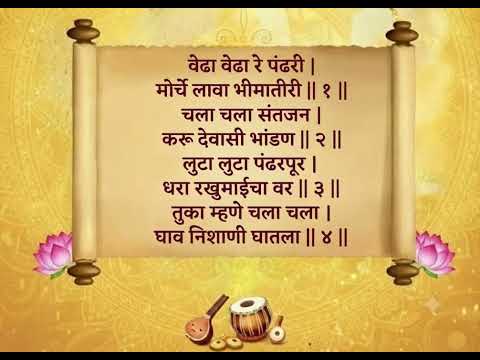 वेढा वेढा रे पंढरी |
मोर्चे लावा भीमातीरी || १ ||
चला चला संतजन |
करू देवासी भांडण || २ ||
लुटा लुटा पंढरपूर |
धरा रखुमाईचा वर || ३ ||
तुका म्हणे चला चला |
घाव निशाणी घातला || ४ ||